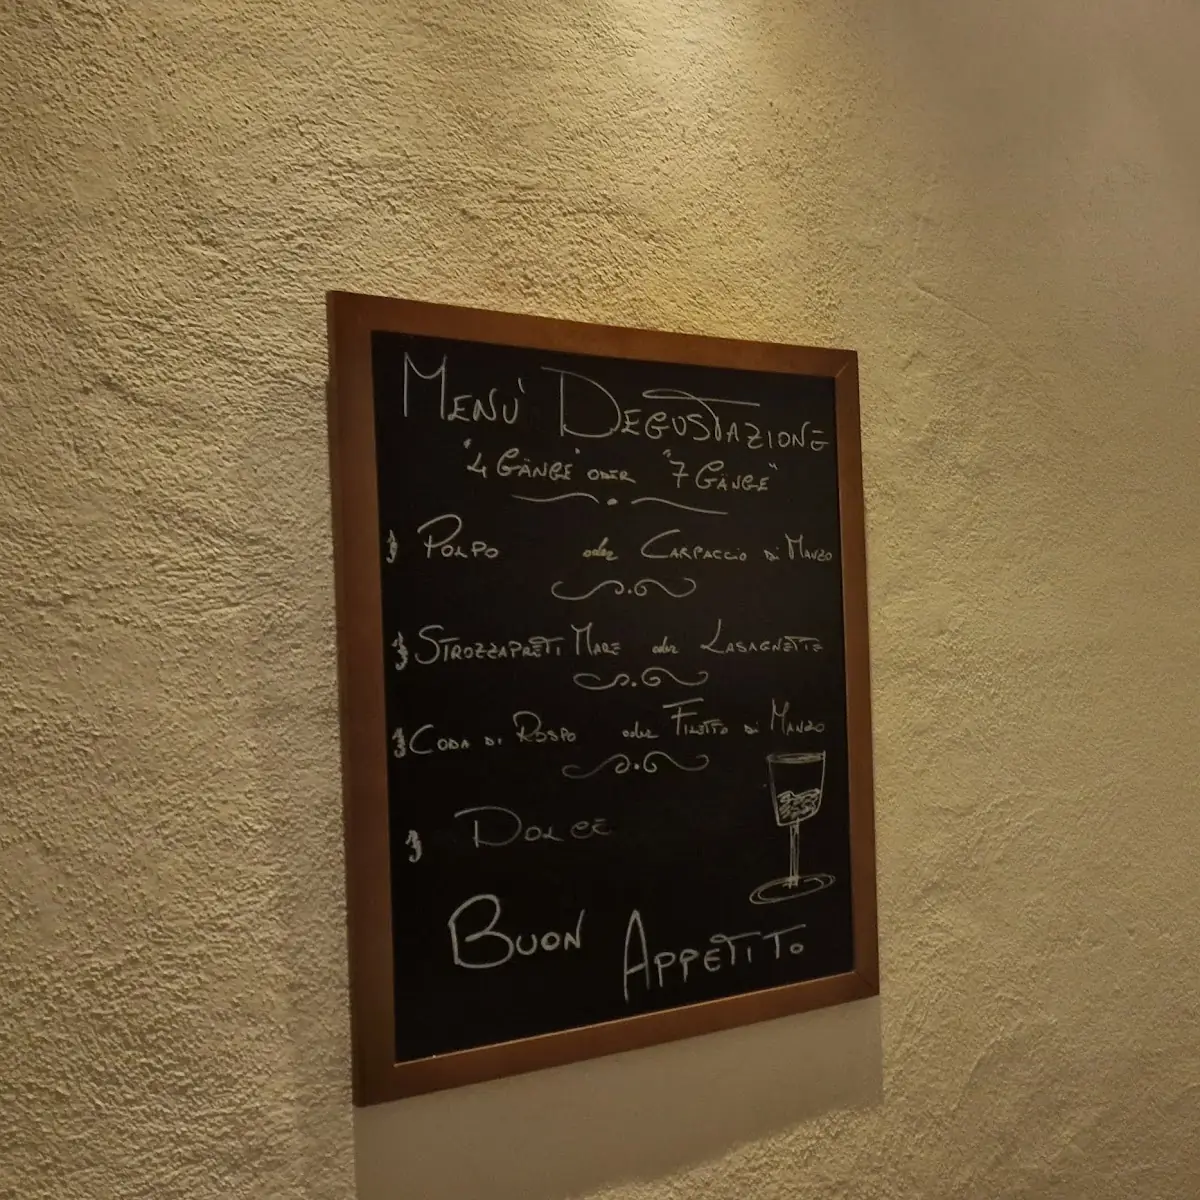 MENÙ DEGUSTAZIONE
"4 GÄNGE" ODER "7 GÄNGE"
POLPO oder CARPACCIO di MANZO
STROZZAPRETI MARE oder LASAGNETTE
CODA DI ROSPO oder FILETTO di MANZO
DOLCE
BUON APPETITO